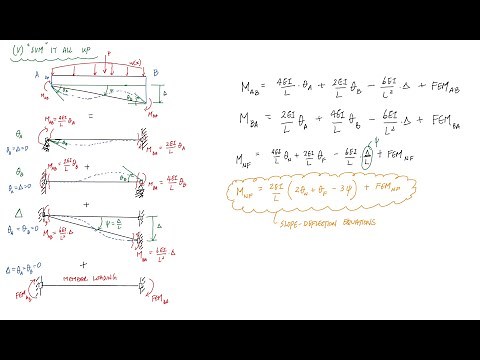 (V) "SUM" IT ALL UP
P
w(x)
A B
θ_A θ_B ψ Δ
M_AB M_BA
=
M_AB = 4EI/L θ_A
θ_A
θ_B = Δ = 0
M_BA = 2EI/L θ_A
+
M_AB = 2EI/L θ_B
θ_B
θ_A = Δ = 0
M_BA = 4EI/L θ_B
+
Δ
θ_A = θ_B = 0
ψ = Δ/L
Δ
M_AB = 6EI/L² Δ
M_BA = 6EI/L² Δ
+
Δ = θ_A = θ_B = 0
MEMBER LOADING
FEM_AB FEM_BA
M_AB = 4EI/L · θ_A + 2EI/L θ_B − 6EI/L² · Δ + FEM_AB
M_BA = 2EI/L θ_A + 4EI/L θ_B − 6EI/L² · Δ + FEM_BA
ψ
M_NF = 4EI/L θ_N + 2EI/L θ_F − 6EI/L Δ/L + FEM_NF
M_NF = 2EI/L (2θ_N + θ_F − 3ψ) + FEM_NF
SLOPE-DEFLECTION EQUATIONS